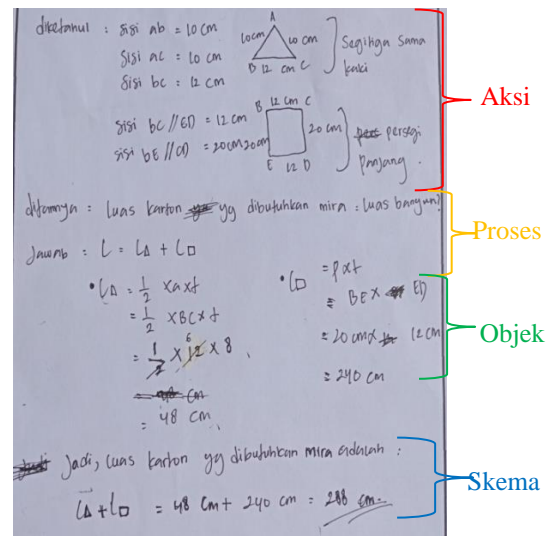 diketahui : sisi ab = 10 cm
sisi ac = 10 cm
sisi bc = 12 cm
A
10cm 10 cm
B 12 cm C
Segitiga sama
kaki
Aksi
sisi bc // ED = 12 cm
sisi bE // CD = 20cm
B 12 cm C
20cm 20 cm
E 12 D
persegi
panjang.
ditanya : luas karton yg dibutuhkan mira : luas bangun?
Proses
Jawab : L = L△ + L□
• L△ = 1/2 x a x t
= 1/2 x BC x t
= 1/2 x 12 x 8
6
= 48 cm
= 48 cm
• L□ = p x t
= BE x ED
= 20 cm x 12 cm
= 240 cm
Objek
Jadi, luas karton yg dibutuhkan mira adalah :
L△ + L□ = 48 cm + 240 cm = 288 cm.
Skema